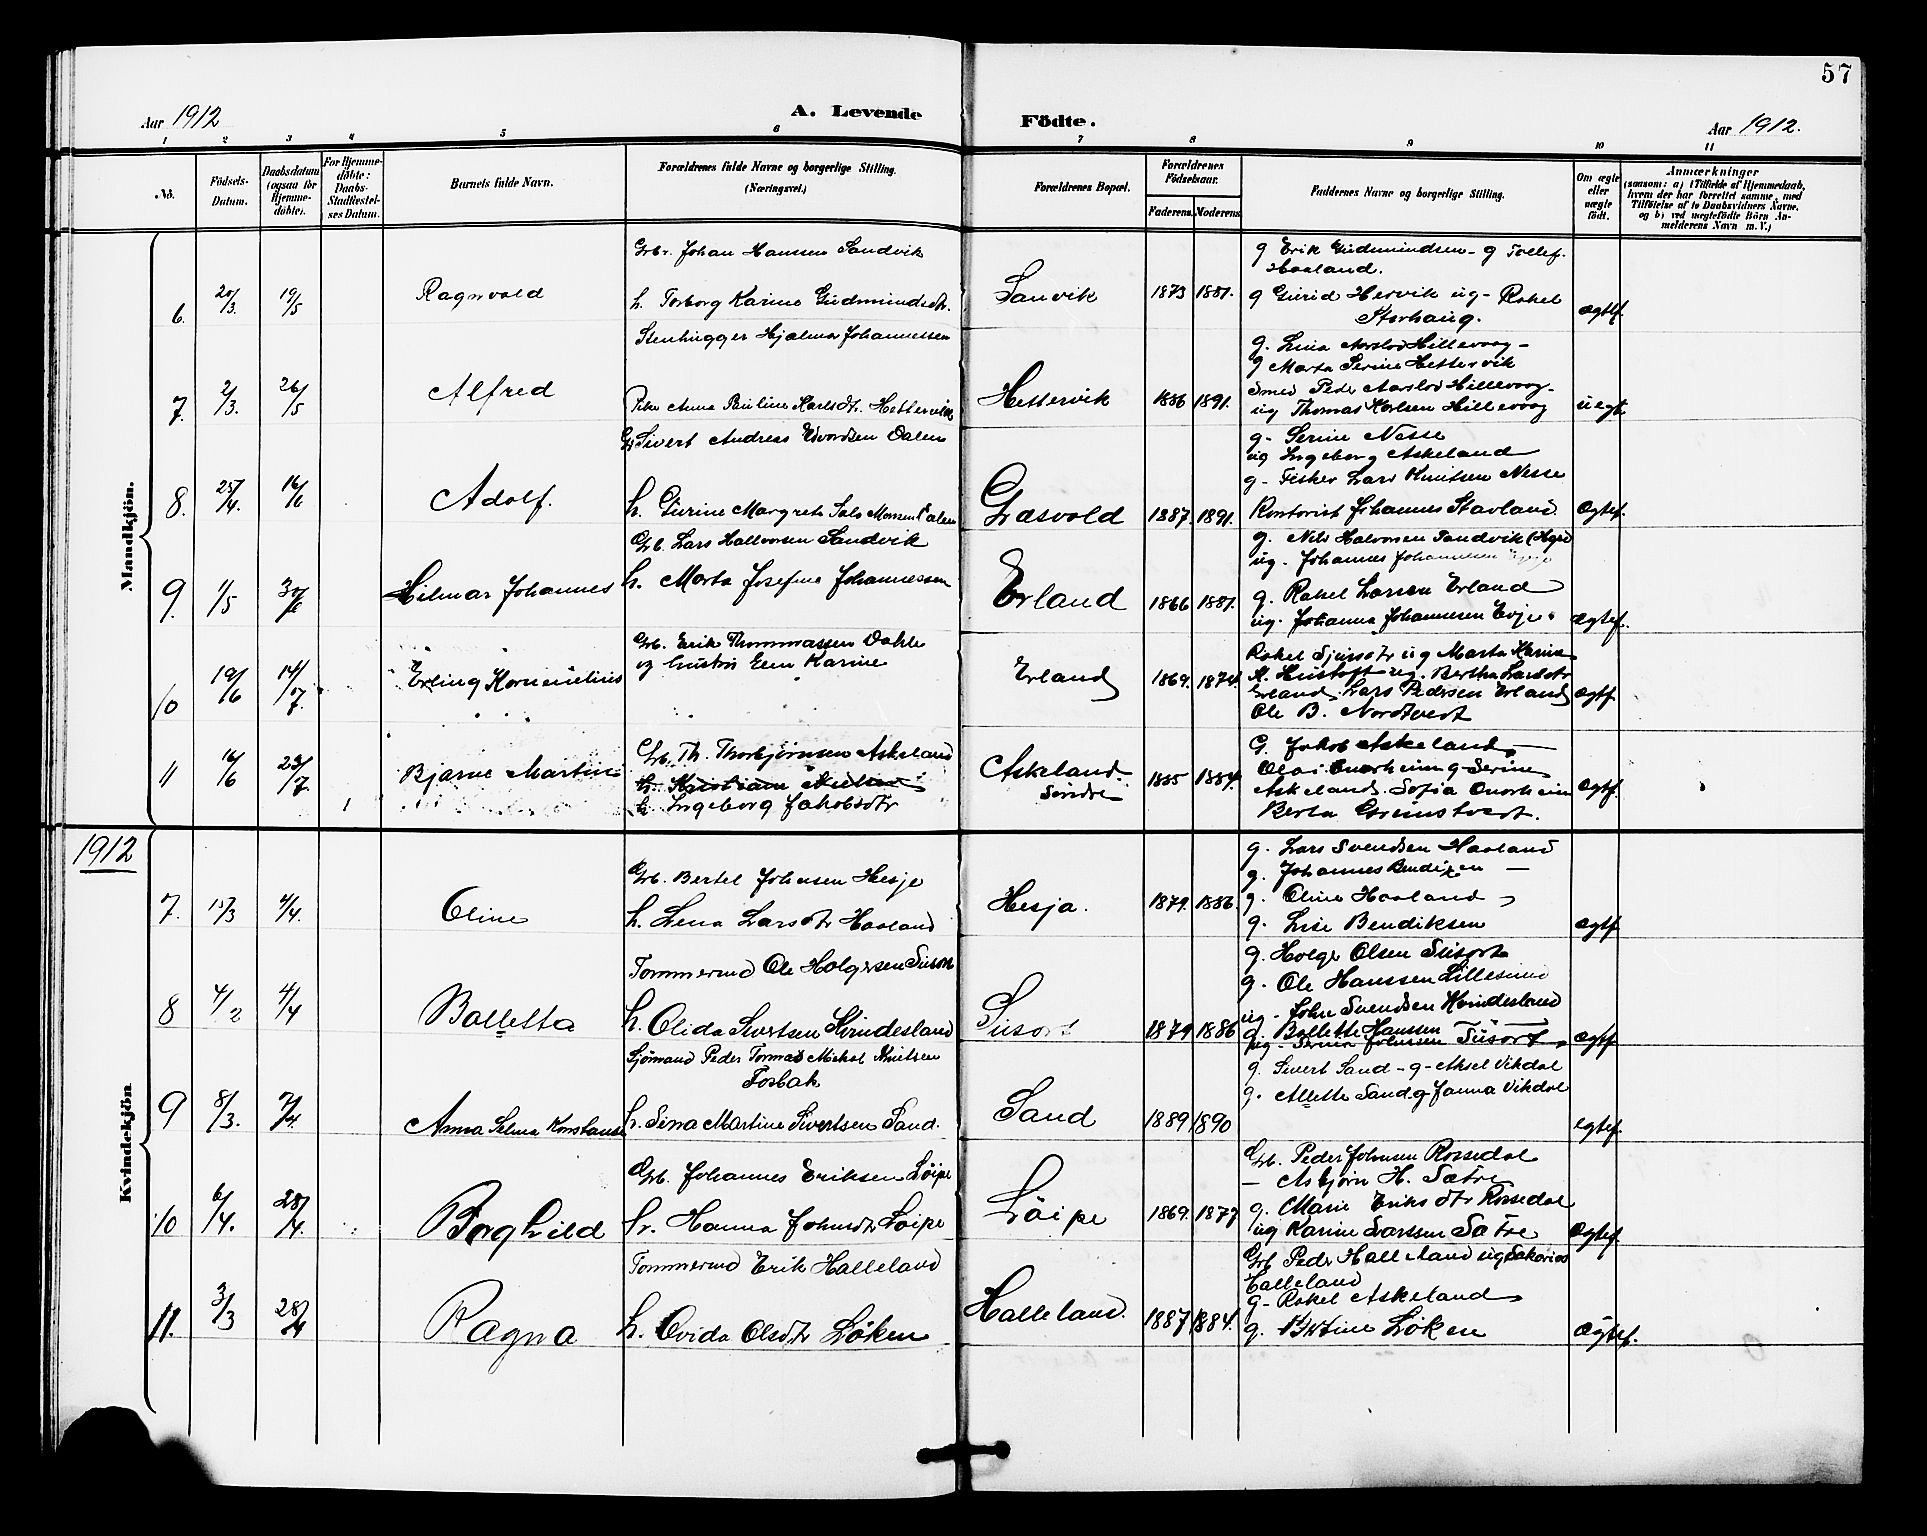 57
Aar 1912
A. Levende
Födte.
Aar 1912.
1 2 3 4 5 6 7 8 9 10 11
No.
Födsels-Datum.
Daabsdatum (ogsaa for Hjemme-döbte).
For Hjemme-döbte: Daabs-Stadfæstelses Datum.
Barnets fulde Navn.
Forældrenes fulde Navne og borgerlige Stilling. (Næringsvei.)
Forældrenes Bopæl.
Forældrenes Födselsaar.
Faderens. Moderens.
Faddernes Navne og borgerlige Stilling.
Om ægte eller uægte födt.
Anmærkninger
(saasom: a) i Tilfælde af Hjemmedaab, hvem der har forrettet samme, med Tilföielse af to Daabsvidners Navne, og b) ved uægtefödte Börn Anmelderens Navn m. V.)
Mandkjön.
6. 20/3. 19/5 Ragnvald
Grbr. Johan Hanssen Sandvik
h. Torborg Karine Gudmundsdtr.
Sanvik 1873 1881.
g Erik Gudmundsen - g Tollef.
Haaland.
g Gurid Hervik ug - Rakel
Storhaug.
ægtf.
7. 2/3. 26/5 Alfred
Stenhugger Hjalmar Johannessen
Pike Anna Pauline Karlsdtr. Hettervik
Hettervik 1886 1891.
g. Lina Aarslov Hillevaag -
g Marta Serine Hettervik
Smed Peder Aarslov Hillevaag -
ug Thomas Karlsen Hillevaag
uegt.
8. 25/4. 16/6 Adolf.
Sivert Andreas Edvardsen Dalen
h. Gurine Margrete Monsen Dalen
Græsvold 1887. 1891.
g - Serine Nesse
ug Ingeborg Askeland
g - Fisker Lars Knutsen Nesse
Kontorist Johannes Stavland
Ægtef.
9. 1/5 30/6 Hilmar Johannes
Grb. Lars Hallvorsen Sandvik
h. Marta Josefine Johannessen
Erland 1866 1881.
g. Nils Halvorsen Sandvik
ug. Johannes Johannesen
g. Rakel Larsen Erland
ug. Johanna Johannesen Evje.
Ægtef.
10 19/6 14/7. Erling Kornenelius
Grb. Erik Thommassen Dahle
og hustru Elen Karine
Erland 1869. 1874.
Rakel Sjursdtr ug Marta Karine
K. Hustoft ug. Bertha Larsdtr
Erland. Lars Pedersen Erland
Ole B. Nordtvedt
Ægtf.
11 16/6 23/7. Bjarne Martin
Grb. Th. Thorbjørnsen Askeland
h. Ingeborg Jakobsdtr
Askeland. Søndre 1885 1884.
G. Jakob Askeland
Olai Onarheim g - Serine
Askeland. Sofia Onarheim
Berta Grimstvedt.
Ægtf.
1912
Kvindekjön
7. 15/3 4/4. Oline
Grb. Bertel Johnsen Hesje
h. Lena Larsdtr Haaland
Hesja. 1879. 1886.
g. Lars Svendsen Haaland
g. Johannes Bendixen
g. Oline Haaland
g. Lise Bendiksen
ægtf
8 4/2 4/4 Bolletta
Tømmermd Ole Holgersen Susort
h. Olida Sivertsen Kvindesland
Susort 1879 1886
g. Holge Olsen Susort
g. Ole Hanssen Lillesund
ug - John Svendsen Kvindesland
g. Bollette Hanssen
pig - Serina Johnssen Susort
ægtf
9 8/3. 7/4. Anna Selma Konstanse
Sjømand Peder Tormod Mickal Knutsen
Fosbak
h. Sina Martine Sivertsen Sand.
Sand 1889 1890
g. Sivert Sand - g - Aksel Vikdal
g. Allette Sand. g Janna Vikdal
egtef.
10 6/4. 28/4. Borghild
Grb. Johannes Eriksen Løipe
hr. Hanna Johnsdtr Løipe
Løipe 1869. 1877
Grb. Peder Johnsen Rossedal
— Asbjørn H. Sætre
g. Marie Eriksdtr Rossedal
ug Karine Larssen Sætre
Ægtef.
11. 3/3 28/4 Ragna
Tømmermd Erik Halleland
h. Ovida Olsdtr Løken
Halleland. 1887 1884.
Grb Peder Halleland ug Sakarias
Halleland
g - Rakel Askeland
g. Løken
Ægtef.